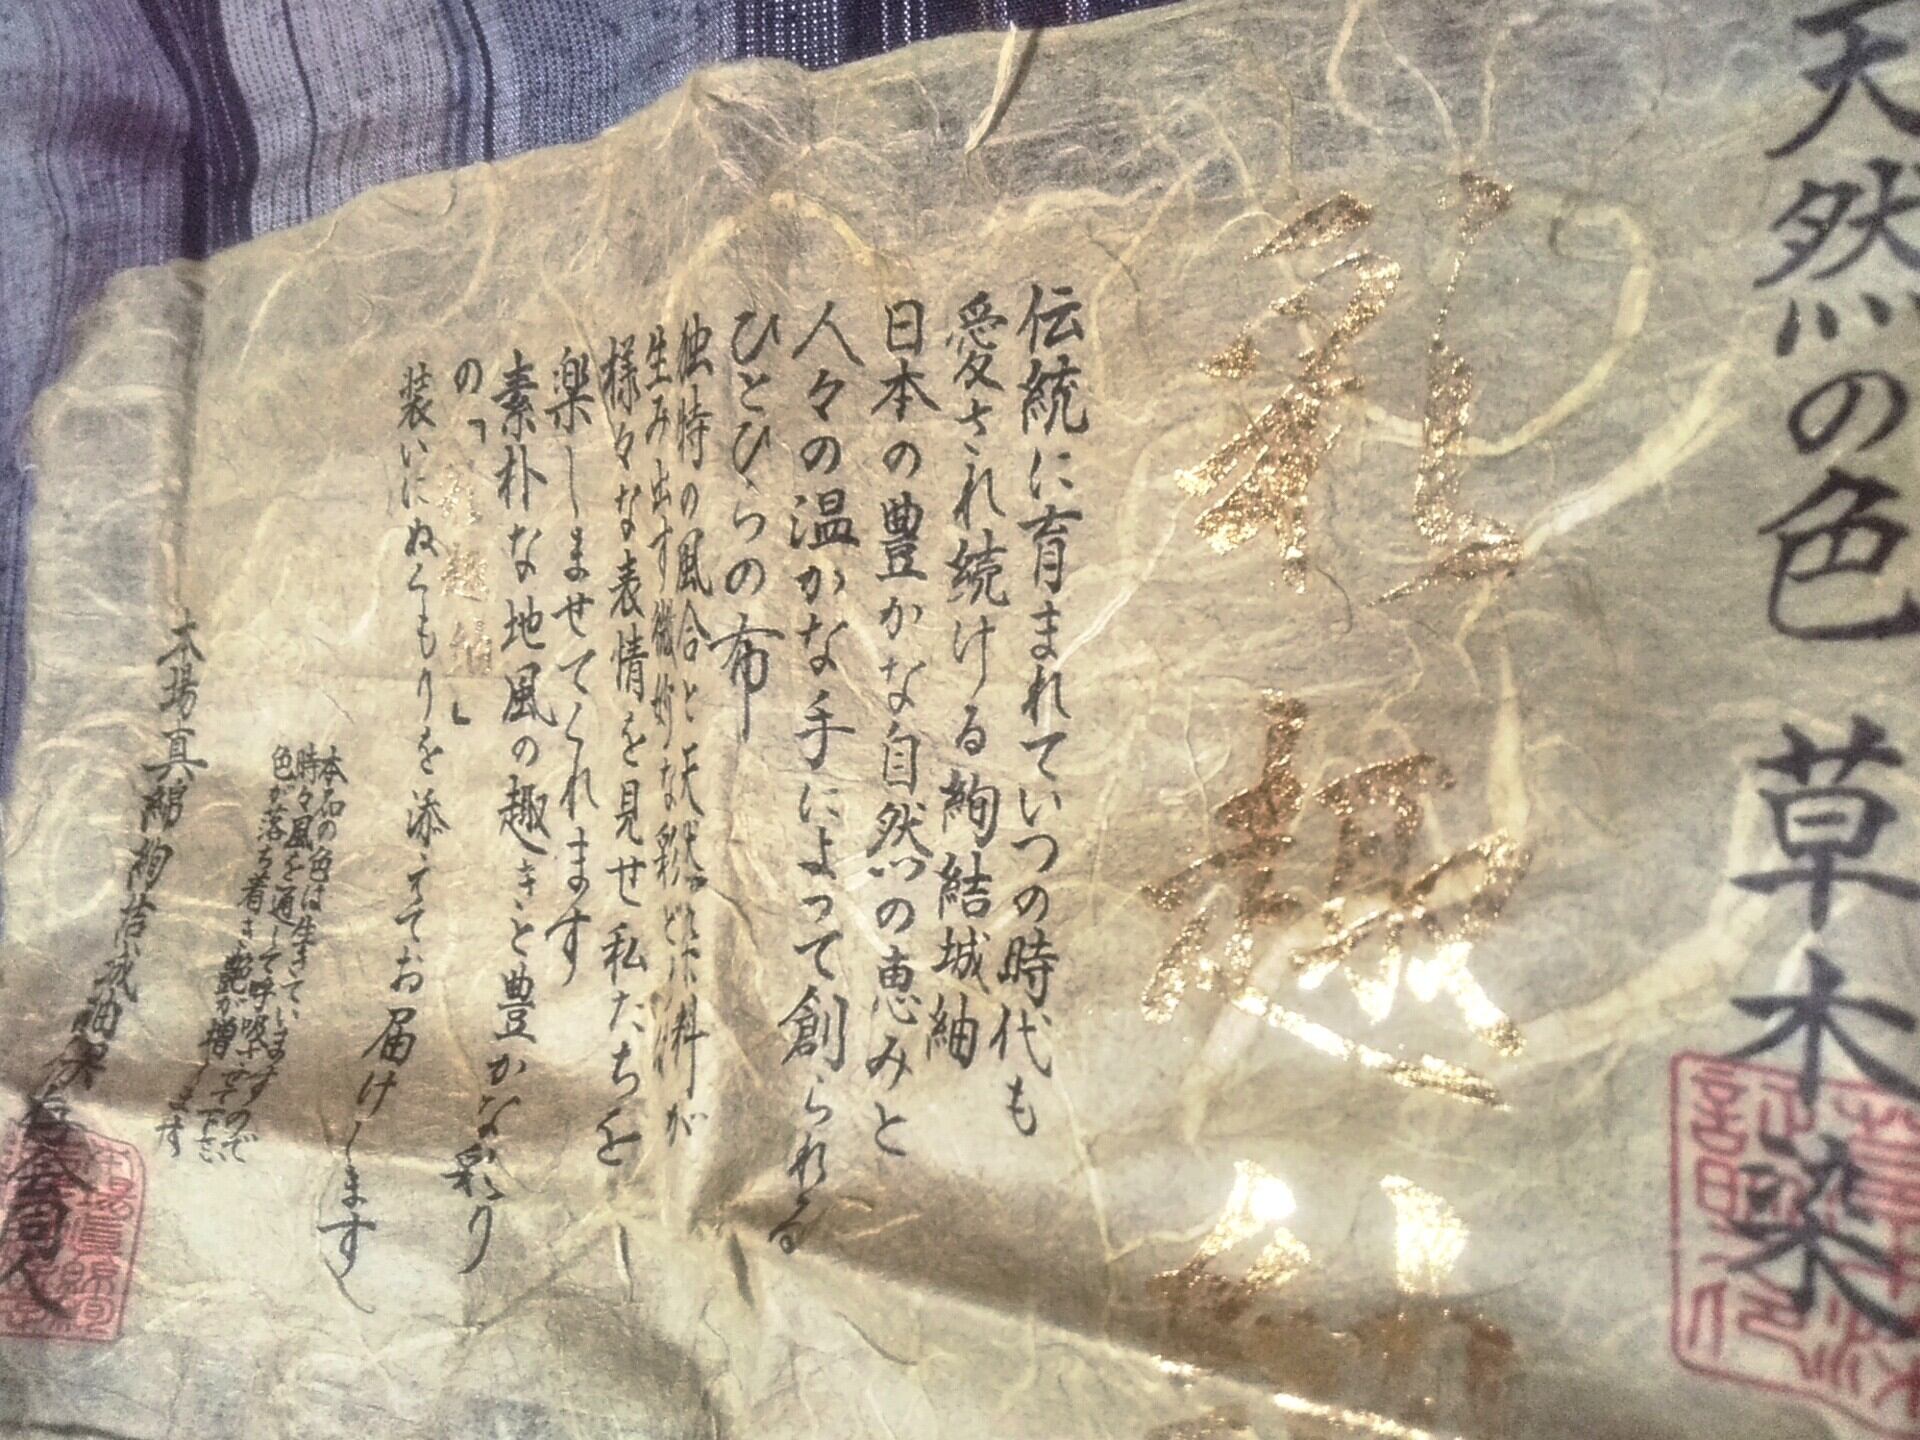 天然の色 草木染
礼趣紬
伝統に育まれていつの時代も
愛され続ける絢結城紬
日本の豊かな自然の恵みと
人々の温かな手によって創られる
ひとひらの布
独特の風合と天然の染料が
生み出す微妙な彩どりは
様々な表情を見せ私たちを
楽しませてくれます
素朴な地風の趣きと豊かな彩り
の「礼趣紬」
装いにぬくもりを添えてお届けします
本品の色は生きていますので
時々風を通して呼吸させて下さい
色が落ち着き艶が増します
本場真綿絢結城紬保存会同人